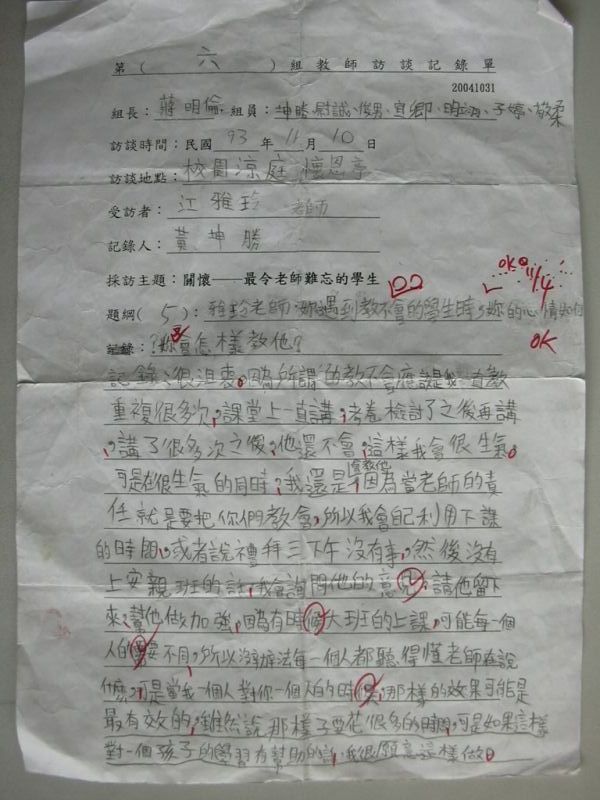 第(六)組教師訪談記錄單
20041031
組長：蔣明倫 組員：坤勝、尉誠、俊男、宜卿、子婷、敏柔
訪談時間：民國 93 年 11 月 10 日
訪談地點：校園涼庭 懷恩亭
受訪者：江雅玲 老師
記錄人：黃坤勝
採訪主題：關懷——最令老師難忘的學生
OK 11/4
題綱(5)：雅玲老師，妳遇到教不會的學生時，妳的心情如何
OK
記錄：？妳會怎樣教他？
記錄：很沮喪。因為所謂的教不會應該是我一直教
重複很多次，課堂上一直講，考卷檢討了之後再講
，講了很多次之後，他還不會，這樣我會很生氣。
可是在很生氣的同時，我還是會教他，因為當老師的責
任就是要把你們教會，所以我會自己利用下課
的時間，或者說禮拜三下午沒有事，然後沒有
上安親班的話，我會詢問他的意見，請他留下
來，幫他做加強，因為有時候大班的上課，可能每一個
人的不同，所以沒辦法每一個人都聽得懂老師在說
什麼，可是當我一個人對你一個人的時候，那樣的效果可能是
最有效的，雖然說那樣子要花很多的時間，可是如果這樣
對一個孩子的學習有幫助的話，我很願意這樣做。